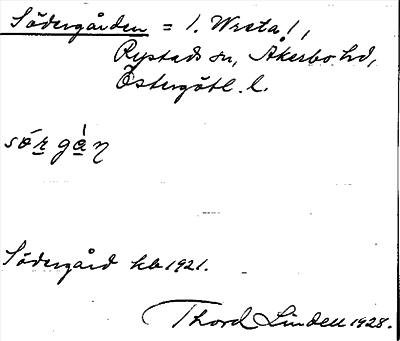 Södergården = 1. Wreta 1,
Rystads sn, Åkerbo hd,
Östergötl. l.
sö́r gà̱n
Södergård kb 1921.
Thord Linden 1928.